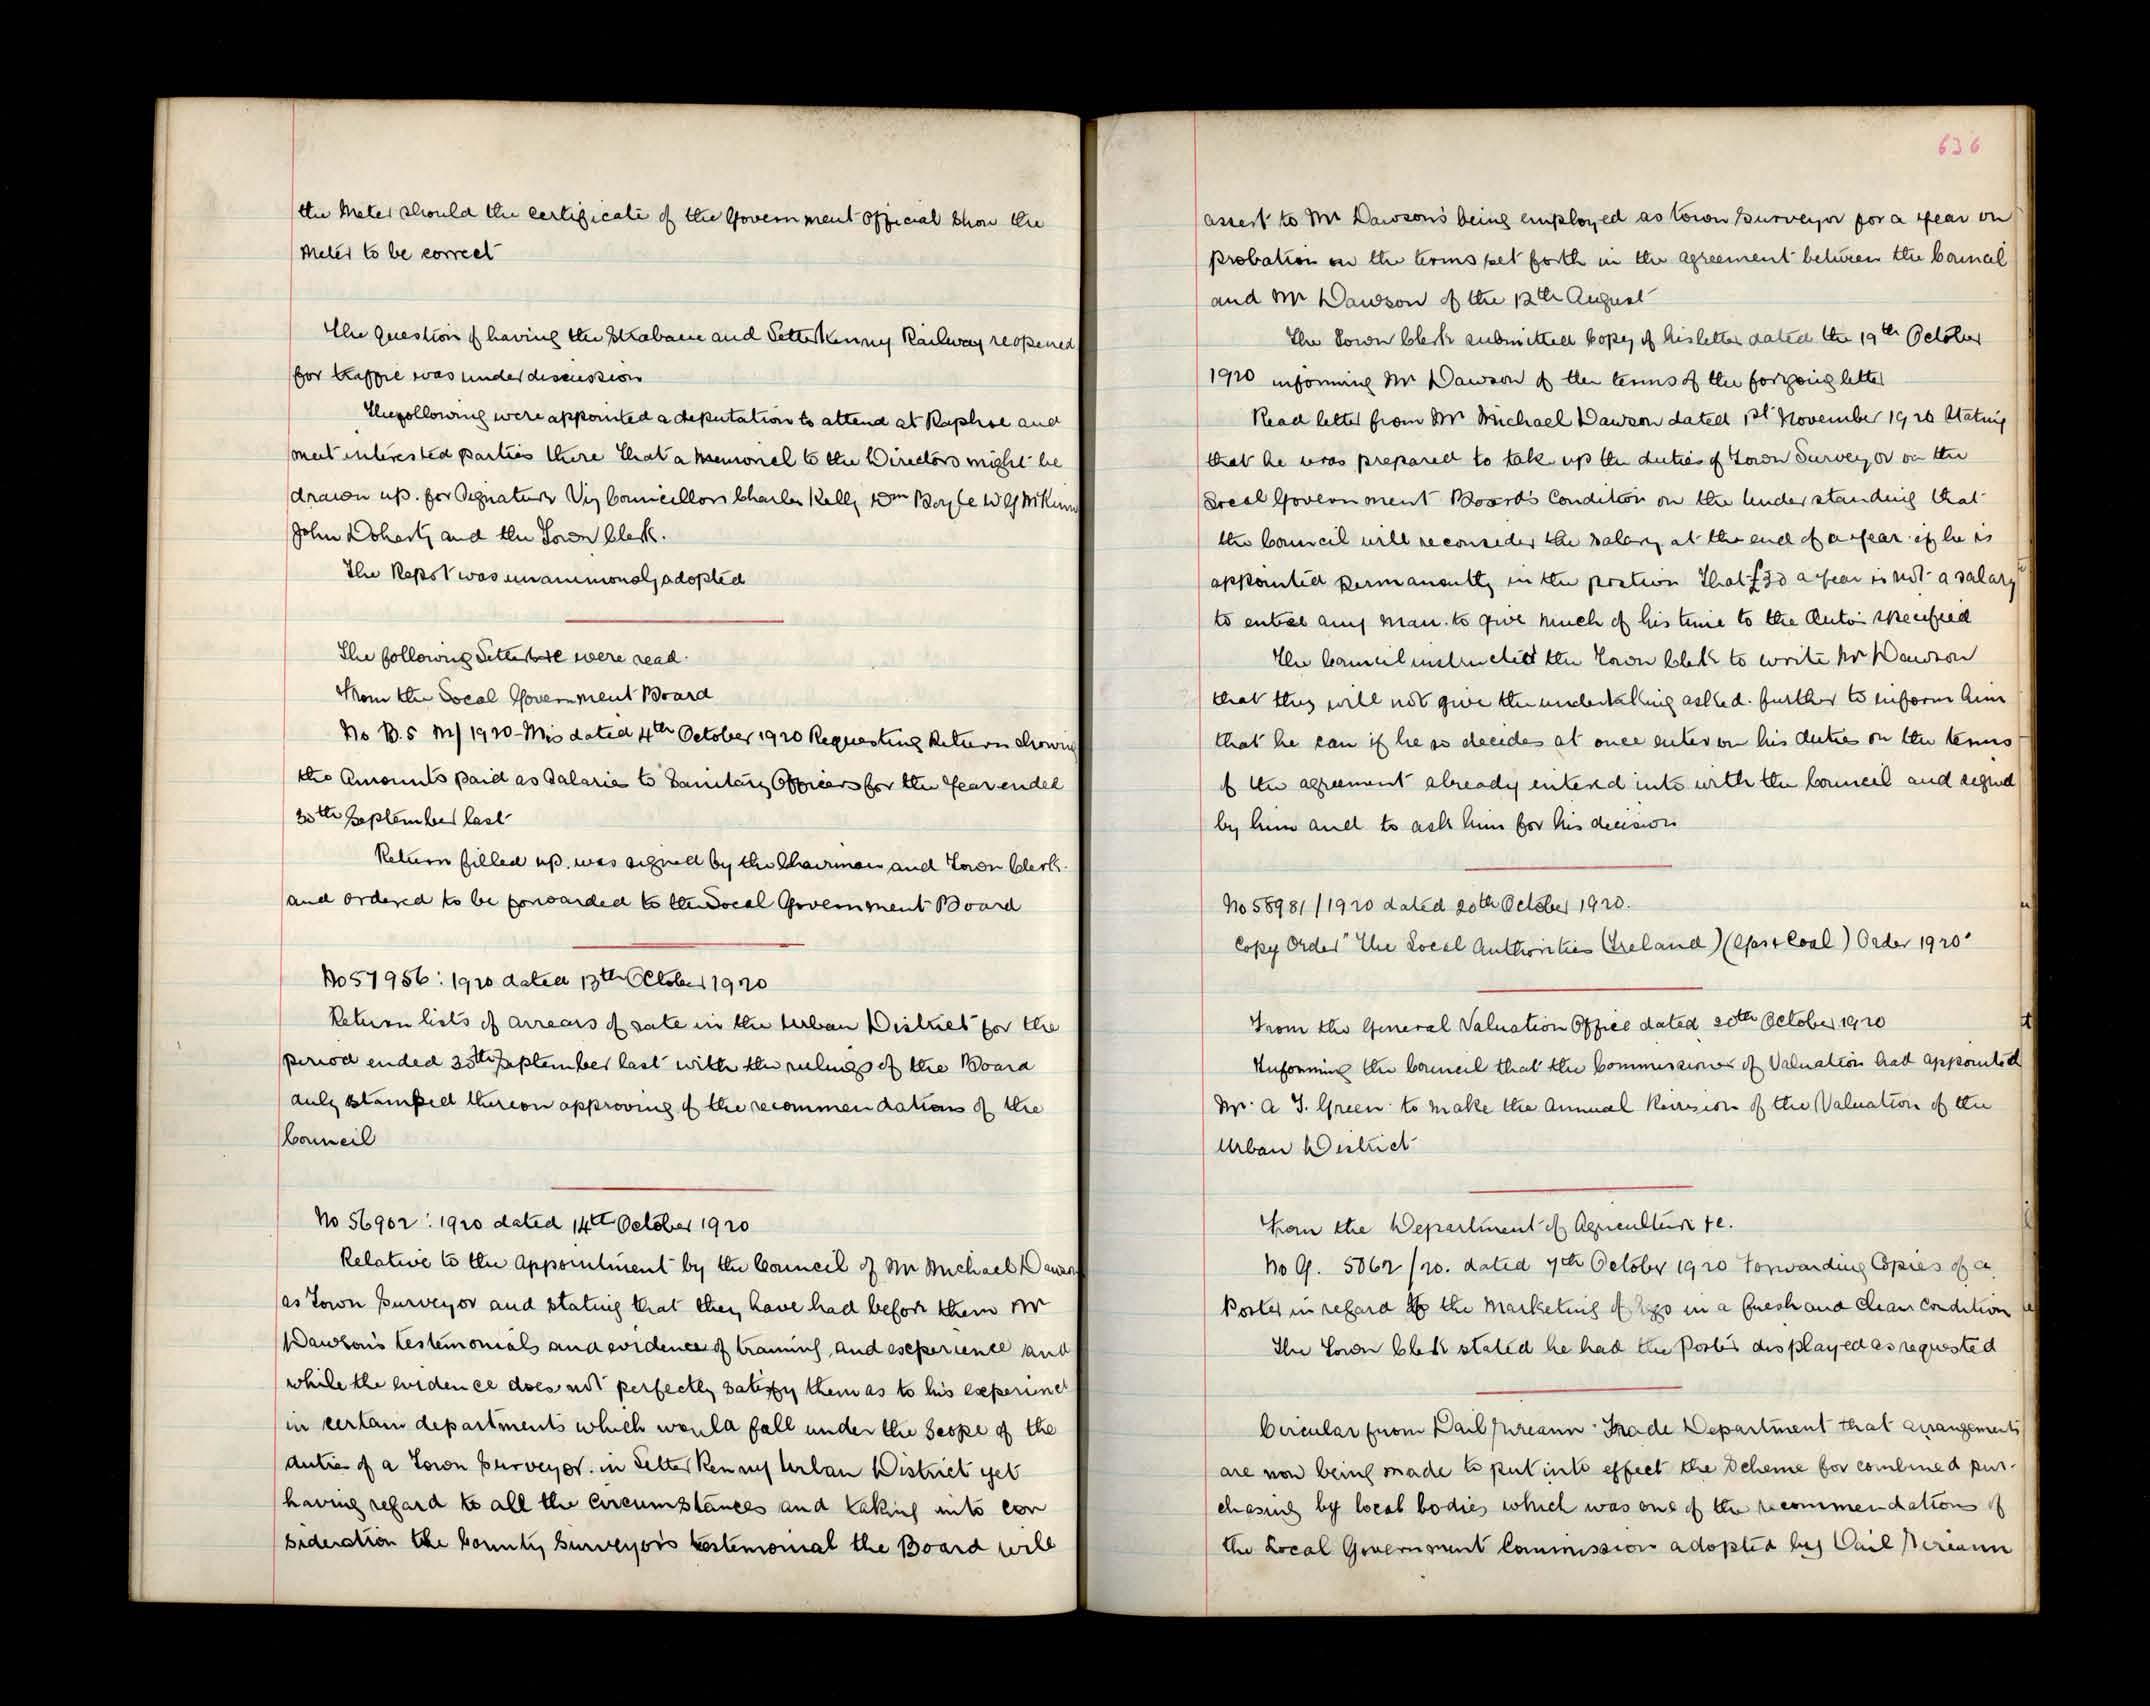 the Meter should the certificate of the Government Official show the
Meter to be correct
The Question of having the Strabane and Letterkenny Railway reopened
for traffic was under discussion
The following were appointed a deputation to attend at Raphoe and
meet interested parties there that a Memorial to the Directors might be
drawn up. for Signature Viz Councillors Charles Kelly Wm Boyle
John Doherty and the Town Clerk.
The Report was unanimously adopted
The following Letters were read.
From the Local Government Board
No B.S M/1920-Mis dated 4th October 1920 Requesting Return showing
the Amounts paid as Salaries to Sanitary Officers for the Year ended
30th September last
Return filled up. was signed by the Chairman and Town Clerk.
and ordered to be forwarded to the Local Government Board
No 57956 : 1920 dated 13th October 1920
Return lists of arrears of rate in the Urban District for the
period ended 30th September last with the rulings of the Board
duly stamped thereon approving of the recommendations of the
Council
No 56902 : 1920 dated 14th October 1920
Relative to the Appointment by the Council of Mr Michael Dawson
as Town Surveyor and stating that they have had before them Mr
Dawson's testimonials and evidence of training, and experience and
while the evidence does not perfectly satisfy them as to his experience
in certain departments which would fall under the Scope of the
duties of a Town Surveyor. in Letterkenny Urban District yet
having regard to all the circumstances and taking into con
sideration the County Surveyor's testimonial the Board will
636
assent to Mr Dawson's being employed as town Surveyor for a year on
probation on the terms set forth in the agreement between the Council
and Mr Dawson of the 12th August
The Town Clerk submitted Copy of his letter dated the 19th October
1920 informing Mr Dawson of the terms of the forgoing letter
Read letter from Mr Michael Dawson dated 1st November 1920 Stating
that he was prepared to take up the duties of Town Surveyor on the
Local Government Board's Condition on the Understanding that
the Council will reconsider the salary at the end of a year if he is
appointed permanently in the position That £30 a year is not a salary
to entice any man. to give much of his time to the duties specified
The Council instructed the Town Clerk to write Mr Dawson
that they will not give the undertaking asked. further to inform him
that he can if he so decides at once enter on his duties on the terms
of the agreement already entered into with the Council and signed
by him and to ask him for his decision
No 58981/1920 dated 20th October 1920.
Copy Order "The Local Authorities (Ireland) (Gas & Coal) Order 1920"
From the General Valuation Office dated 20th October 1920
Informing the Council that the Commissioner of Valuation had appointed
Mr. A T. Green. to make the Annual Revision of the Valuation of the
Urban District
From the Department of Agriculture &c.
No G. 5862/20. dated 7th October 1920 Forwarding Copies of a
Poster in regard to the Marketing of Eggs in a fresh and Clean Condition
The Town Clerk stated he had the Posters displayed as requested
Circular from Dail Eireann Trade Department that arrangements
are now being made to put into effect the Scheme for combined pur-
chasing by local bodies which was one of the recommendations of
the Local Government Commission adopted by Dail Eireann